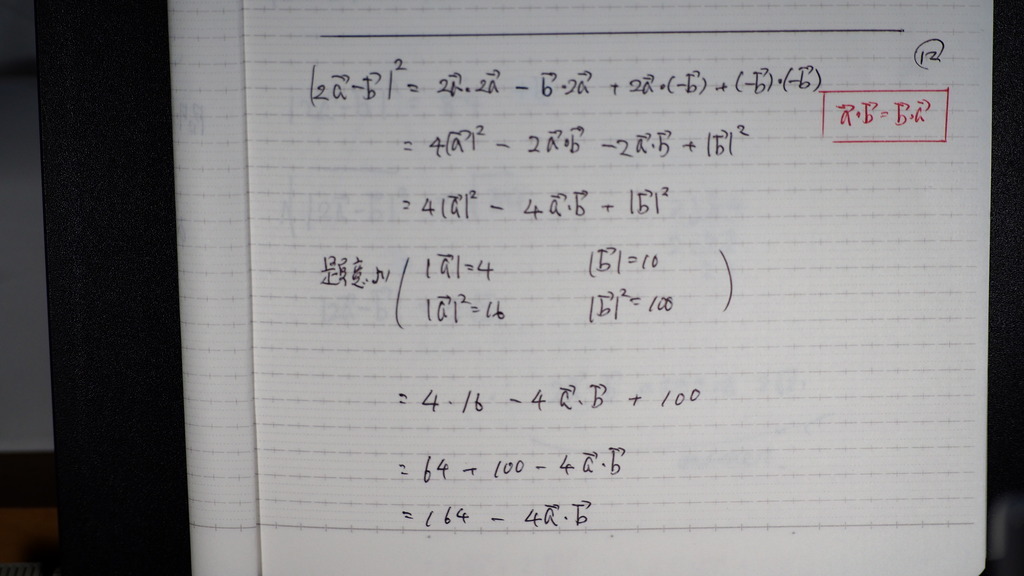 ⑫
|2a⃗-b⃗|² = 2a⃗・2a⃗ - b⃗・2a⃗ + 2a⃗・(-b⃗) + (-b⃗)・(-b⃗)
a⃗・b⃗=b⃗・a⃗
= 4|a⃗|² - 2a⃗・b⃗ - 2a⃗・b⃗ + |b⃗|²
= 4|a⃗|² - 4a⃗・b⃗ + |b⃗|²
題意より ( |a⃗|=4 |b⃗|=10
|a⃗|²=16 |b⃗|²=100 )
= 4・16 - 4a⃗・b⃗ + 100
= 64 + 100 - 4a⃗・b⃗
= 164 - 4a⃗・b⃗